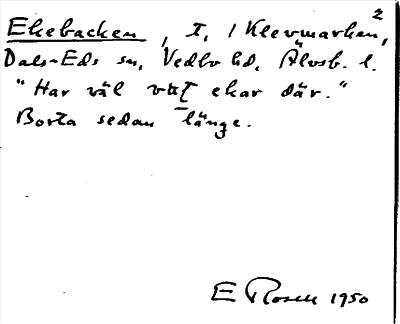 Ekebacken, T, i Klevmarken²,
Dals-Eds sn, Vedbo hd, Älvsb. l.
"Har väl vat ekar där."
Borta sedan länge.
E Rosell 1950